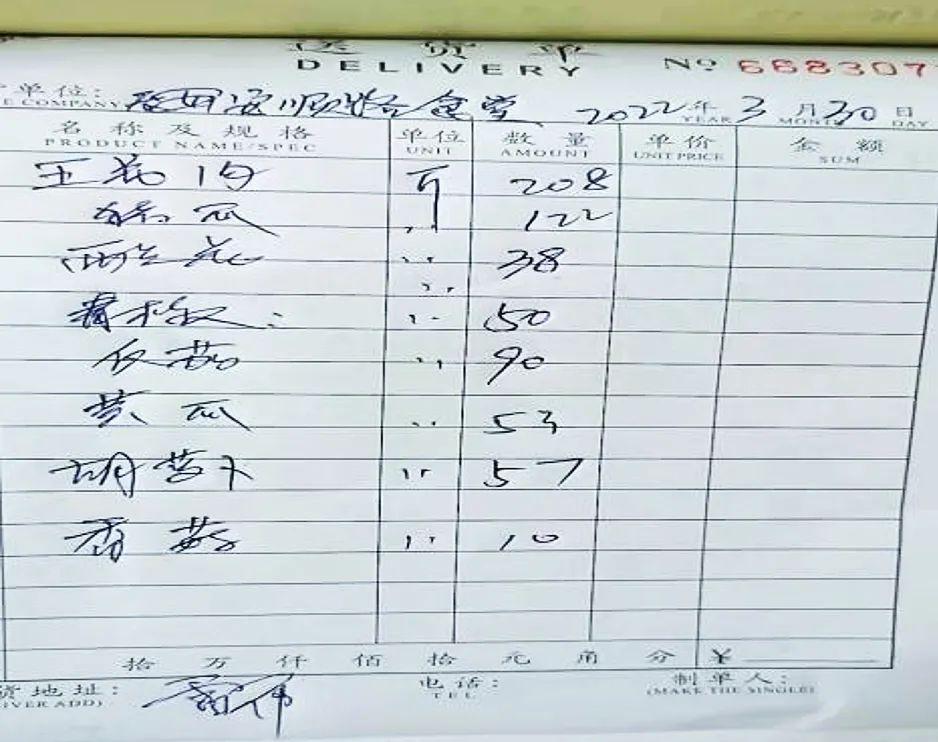 送货单
DELIVERY
No 6683077
单位:
E COMPANY 顺路食堂 2022年 3月 30日
YEAR MONTH DAY
名称及规格 单位 数量 单价 金额
PRODUCT NAME/SPEC UNIT AMOUNT UNIT PRICE SUM
五花肉 斤 208
瓜 〃 122
西兰花 〃 38
〃 50
〃 90
黄瓜 〃 53
胡萝卜 〃 57
香菇 〃 10
拾 万 仟 佰 拾 元 角 分 ¥
货地址: 电话: 制单人:
IVER ADD) TEL (MAKE THE SINGLE)